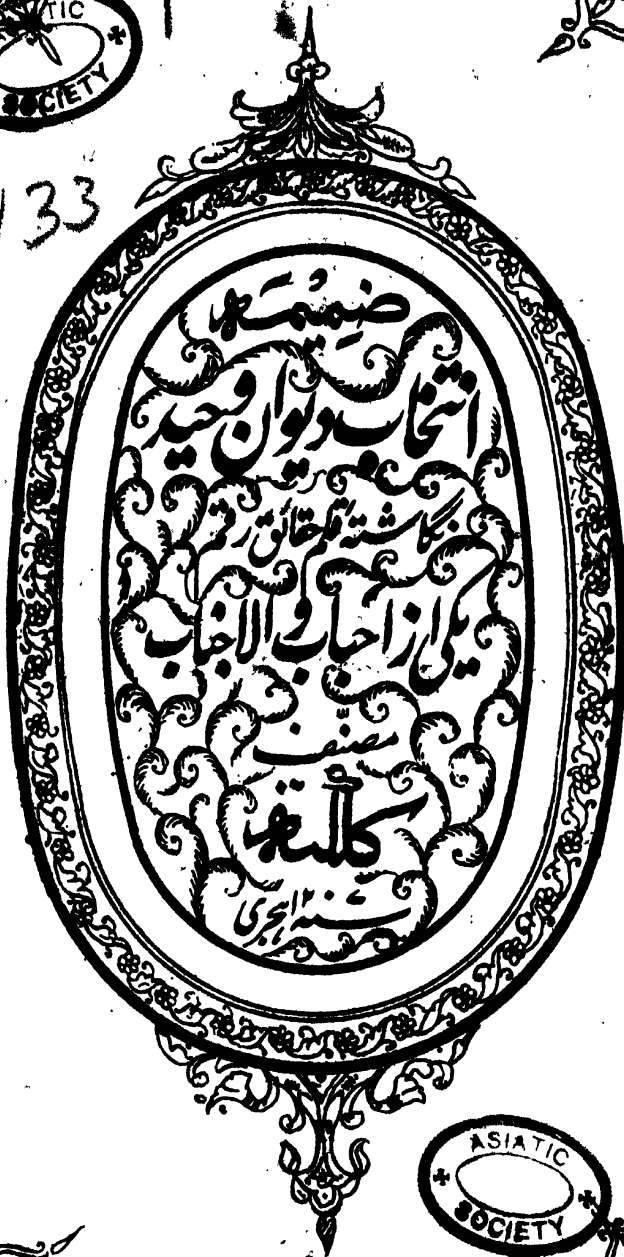 TIC
SOCIETY
133
ضمیمہ
انتخاب دیوان وحید
نگاشتہ قلم حقائق رقم
یکی از احباب والاجناب
مصنف
کلکتہ
ہجری
ASIATIC
SOCIETY